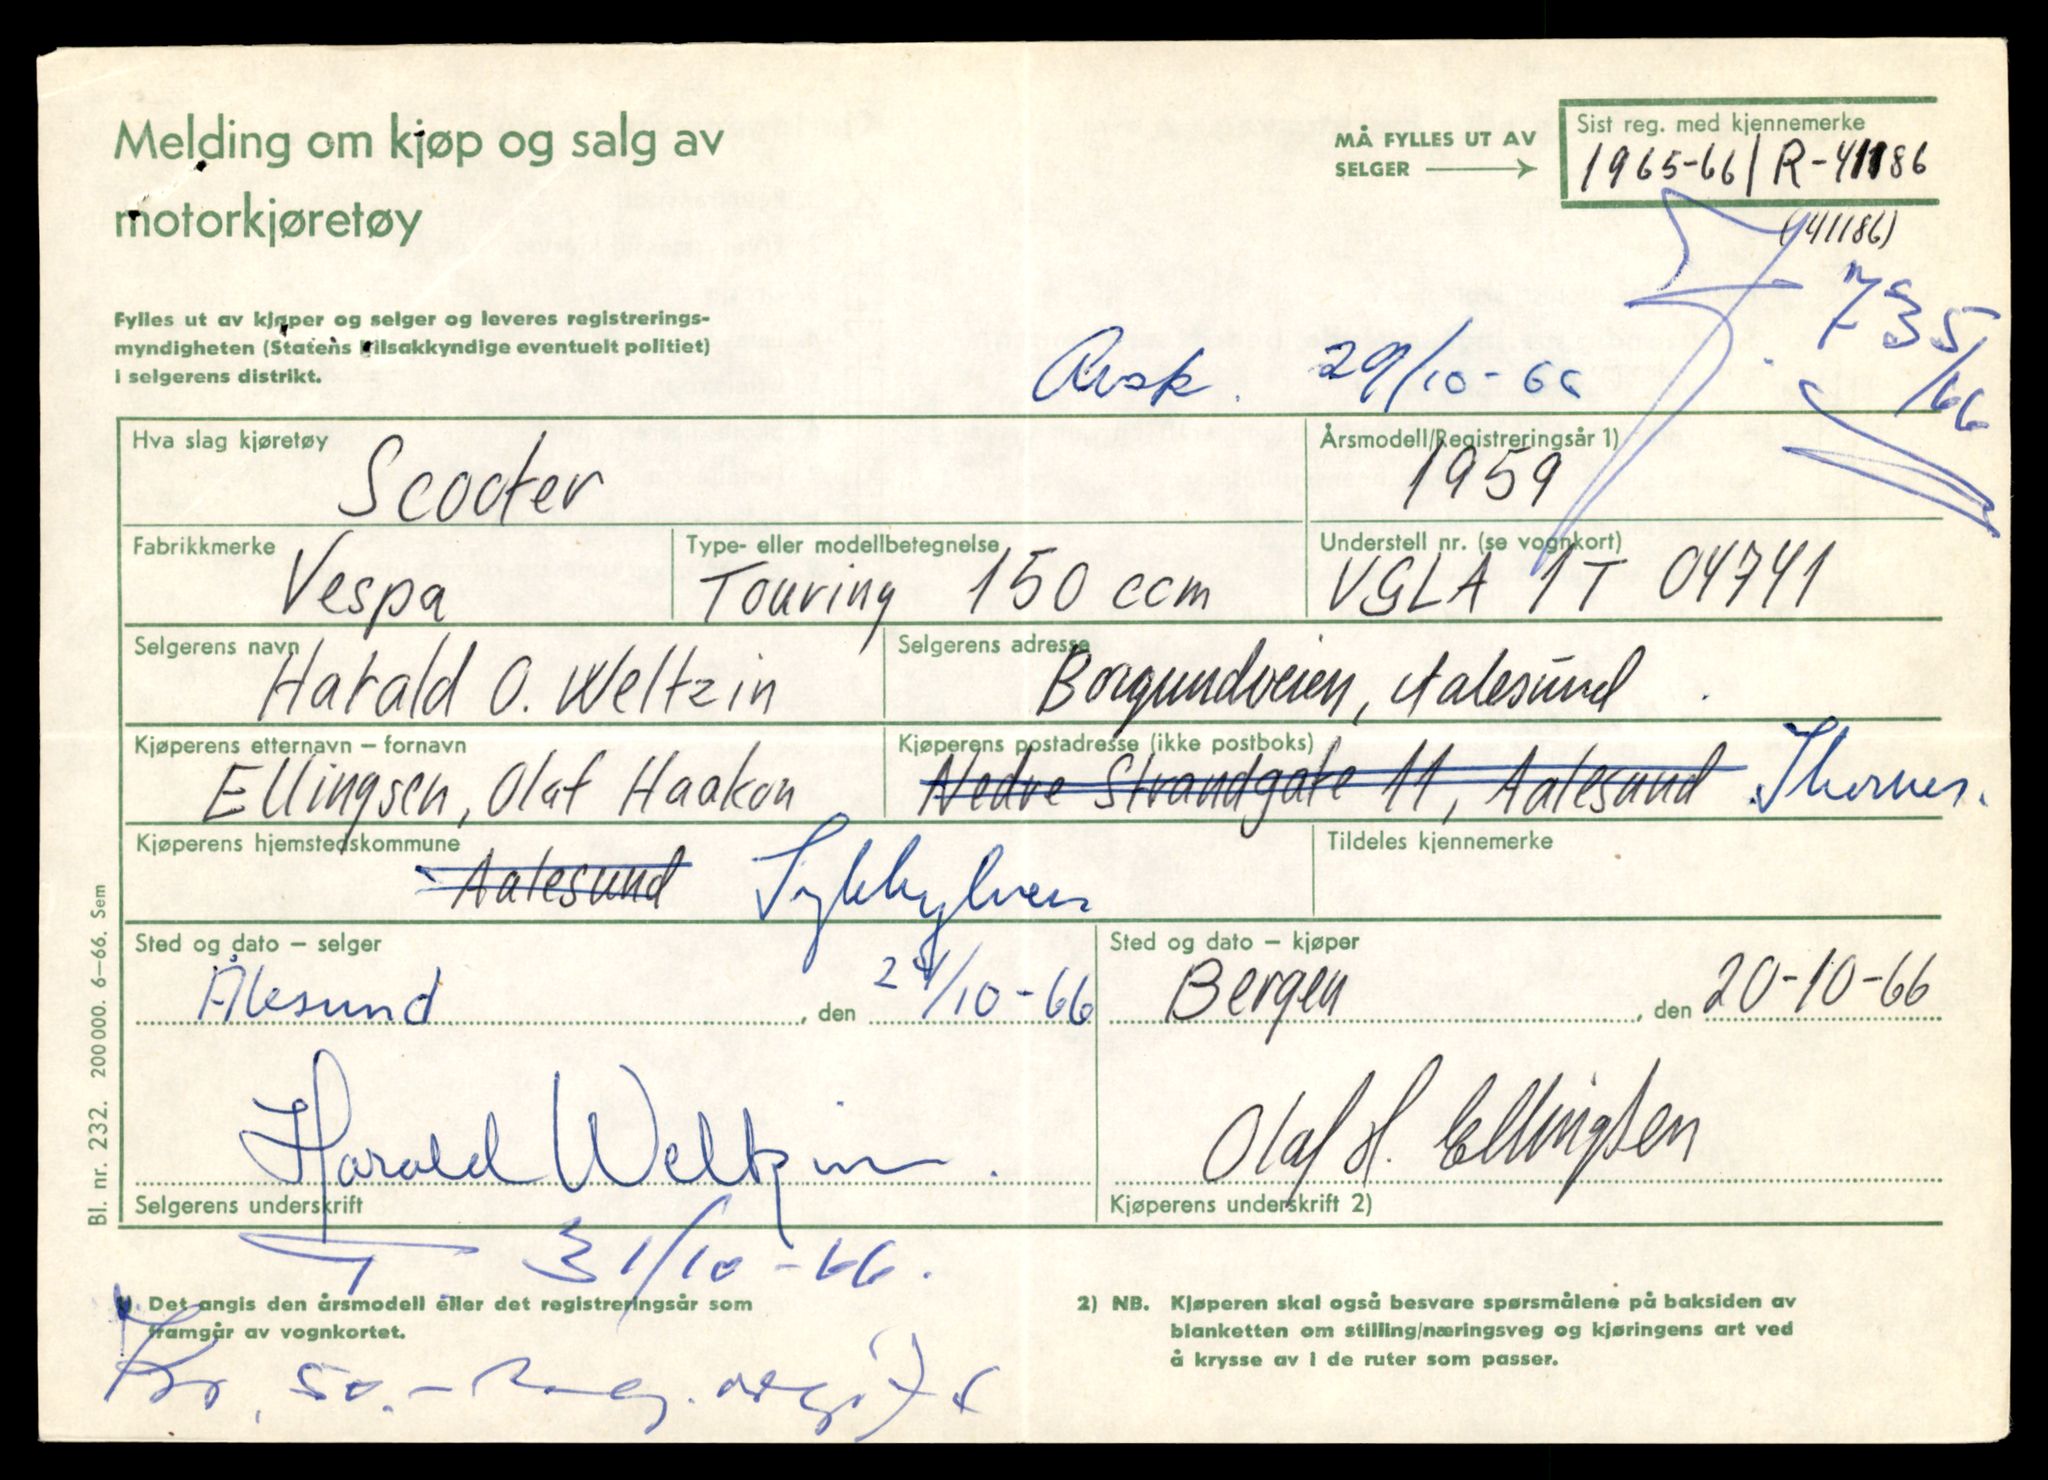 Melding om kjøp og salg av
motorkjøretøy
MÅ FYLLES UT AV
SELGER
Sist reg. med kjennemerke
1965-66/ R-41186
(41186)
735/66
Fylles ut av kjøper og selger og leveres registrerings-
myndigheten (Statens bilsakkyndige eventuelt politiet)
i selgerens distrikt.
Avsk. 29/10-66
Hva slag kjøretøy
Scooter
Årsmodell/Registreringsår 1)
1959
Fabrikkmerke
Vespa
Type- eller modellbetegnelse
Touring 150 ccm
Understell nr. (se vognkort)
VGLA 1T 04741
Selgerens navn
Harald O. Weltzin
Selgerens adresse
Borgundveien, Aalesund
Kjøperens etternavn – fornavn
Ellingsen, Olaf Haakon
Kjøperens postadresse (ikke postboks)
Nedre Strandgate 11, Aalesund
Kjøperens hjemstedskommune
Aalesund Sykkylven
Tildeles kjennemerke
Sted og dato – selger
Ålesund, den 24/10-66
Sted og dato – kjøper
Bergen, den 20-10-66
Harald Weltzin
Selgerens underskrift
Olaf H. Ellingsen
Kjøperens underskrift 2)
31/10-66.
Det angis den årsmodell eller det registreringsår som
framgår av vognkortet.
Kr. 50.- avgift
2) NB. Kjøperen skal også besvare spørsmålene på baksiden av
blanketten om stilling/næringsveg og kjøringens art ved
å krysse av i de ruter som passer.
Bl. nr. 232. 200 000. 6–66. Sem